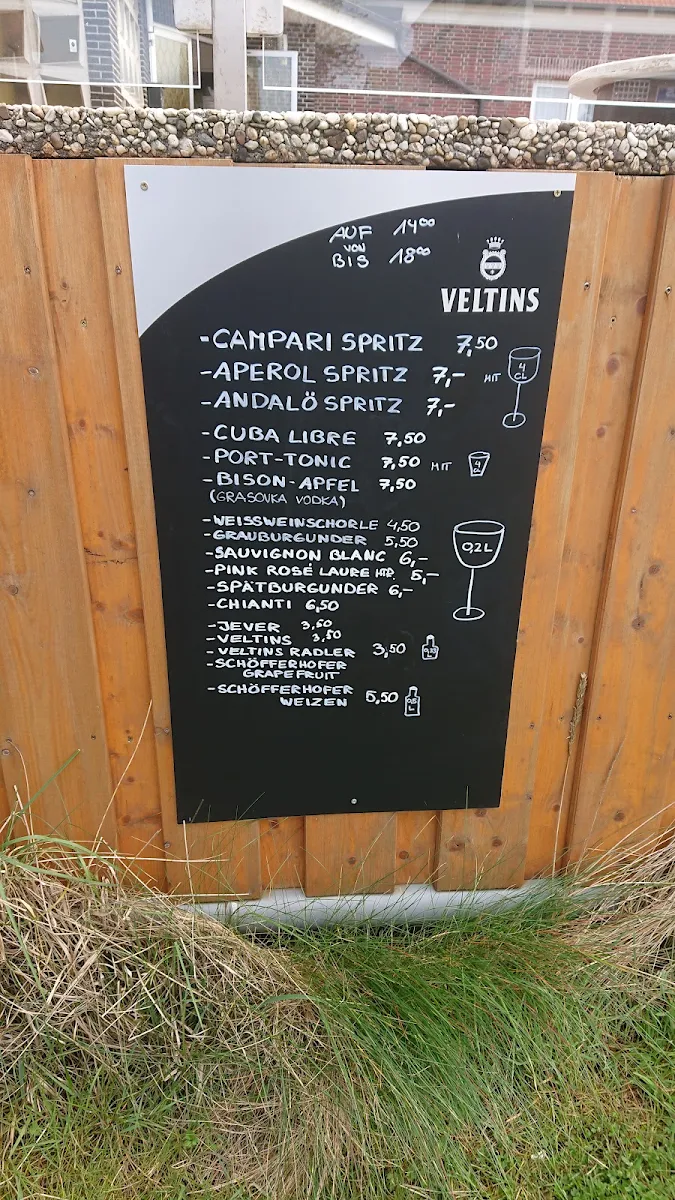 AUF 14⁰⁰
VON
BIS 18⁰⁰
VELTINS
-CAMPARI SPRITZ 7,50
-APEROL SPRITZ 7,- MIT 4 CL
-ANDALÖ SPRITZ 7,-
-CUBA LIBRE 7,50
-PORT-TONIC 7,50 MIT 4 CL
-BISON-APFEL 7,50
(GRASOVKA VODKA)
-WEISSWEINSCHORLE 4,50
-GRAUBURGUNDER 5,50
-SAUVIGNON BLANC 6,- 0,2L
-PINK ROSÉ LAURE HTR. 5,-
-SPÄTBURGUNDER 6,-
-CHIANTI 6,50
-JEVER 3,50
-VELTINS 3,50
-VELTINS RADLER 3,50 0,33 L
-SCHÖFFERHOFER
GRAPEFRUIT
-SCHÖFFERHOFER 5,50 0,5 L
WEIZEN